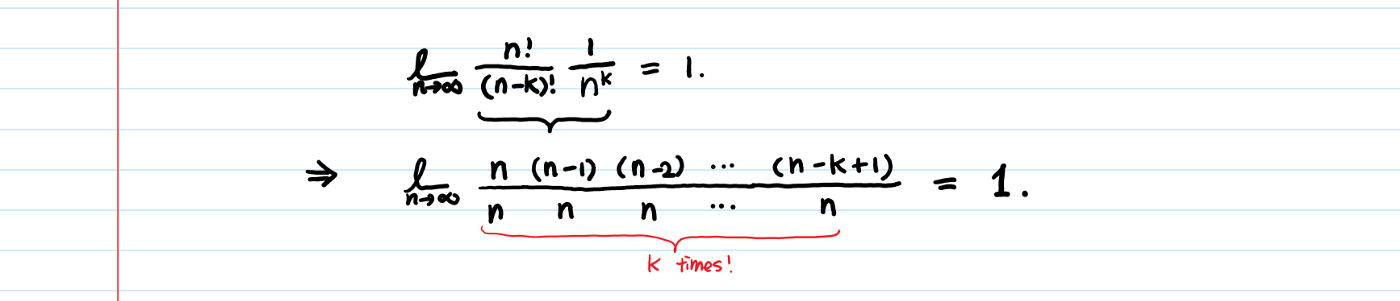 l n→∞ n!/(n-k)! 1/n^k = 1.
⇒ l n→∞ n (n-1) (n-2) ... (n-k+1) / n n n ... n = 1.
k times!